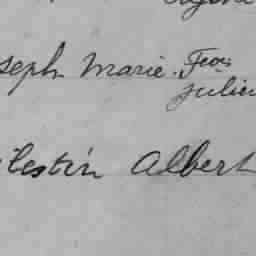 seph Marie. Feois
Julien
lestin Albert